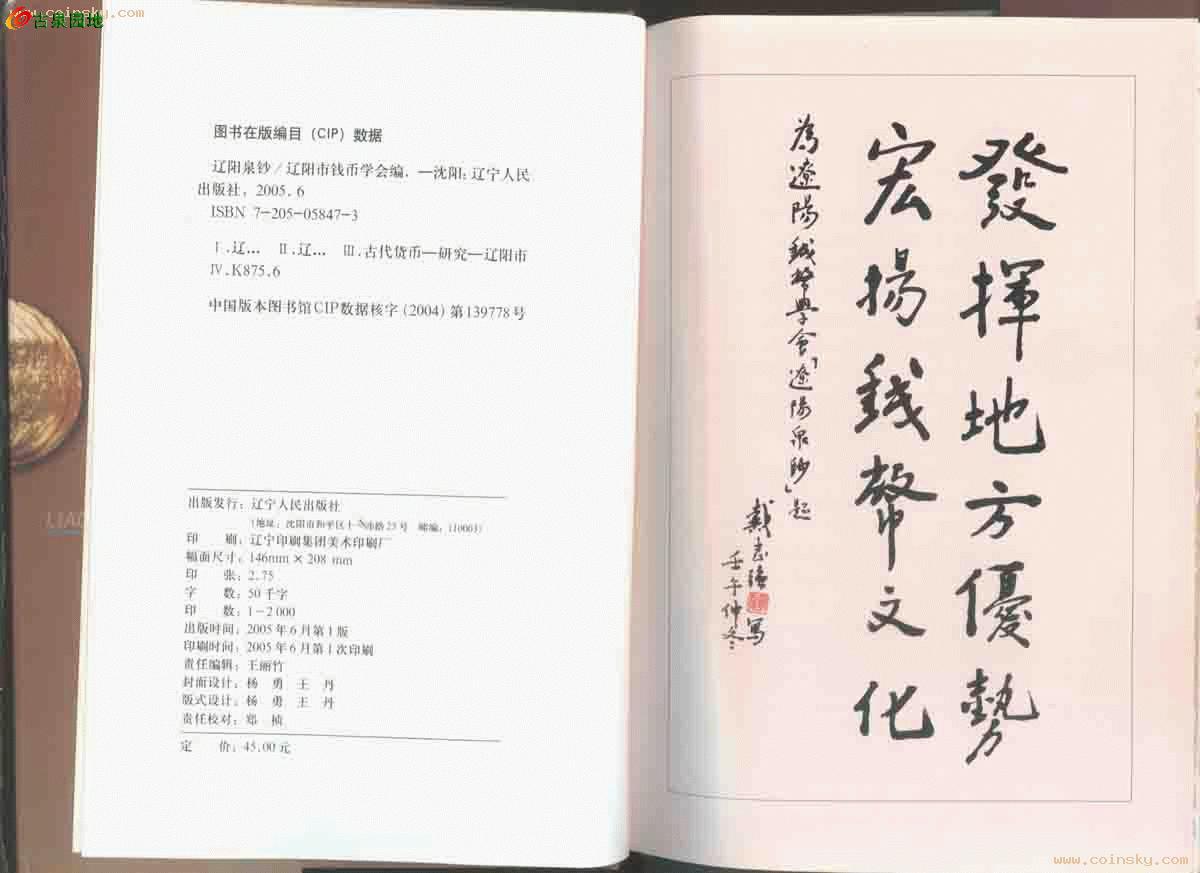 www.coinsky.com
古泉园地
图书在版编目（CIP）数据
辽阳泉钞／辽阳市钱币学会编．—沈阳：辽宁人民
出版社，2005.6
ISBN 7-205-05847-3
Ⅰ.辽… Ⅱ.辽… Ⅲ.古代货币—研究—辽阳市
Ⅳ.K875.6
中国版本图书馆CIP数据核字（2004）第139778号
出版发行：辽宁人民出版社
（地址：沈阳市和平区十一纬路25号 邮编：110003）
印 刷：辽宁印刷集团美术印刷厂
幅面尺寸：146mm×208 mm
印 张：2.75
字 数：50千字
印 数：1-2 000
出版时间：2005年6月第1版
印刷时间：2005年6月第1次印刷
责任编辑：王丽竹
封面设计：杨 勇 王 丹
版式设计：杨 勇 王 丹
责任校对：郑 祯
定 价：45.00元
LIAO
發揮地方優勢
宏揚錢幣文化
為遼陽錢幣學會「遼陽泉鈔」題
戴志強
寫
壬午仲冬
www.coinsky.com